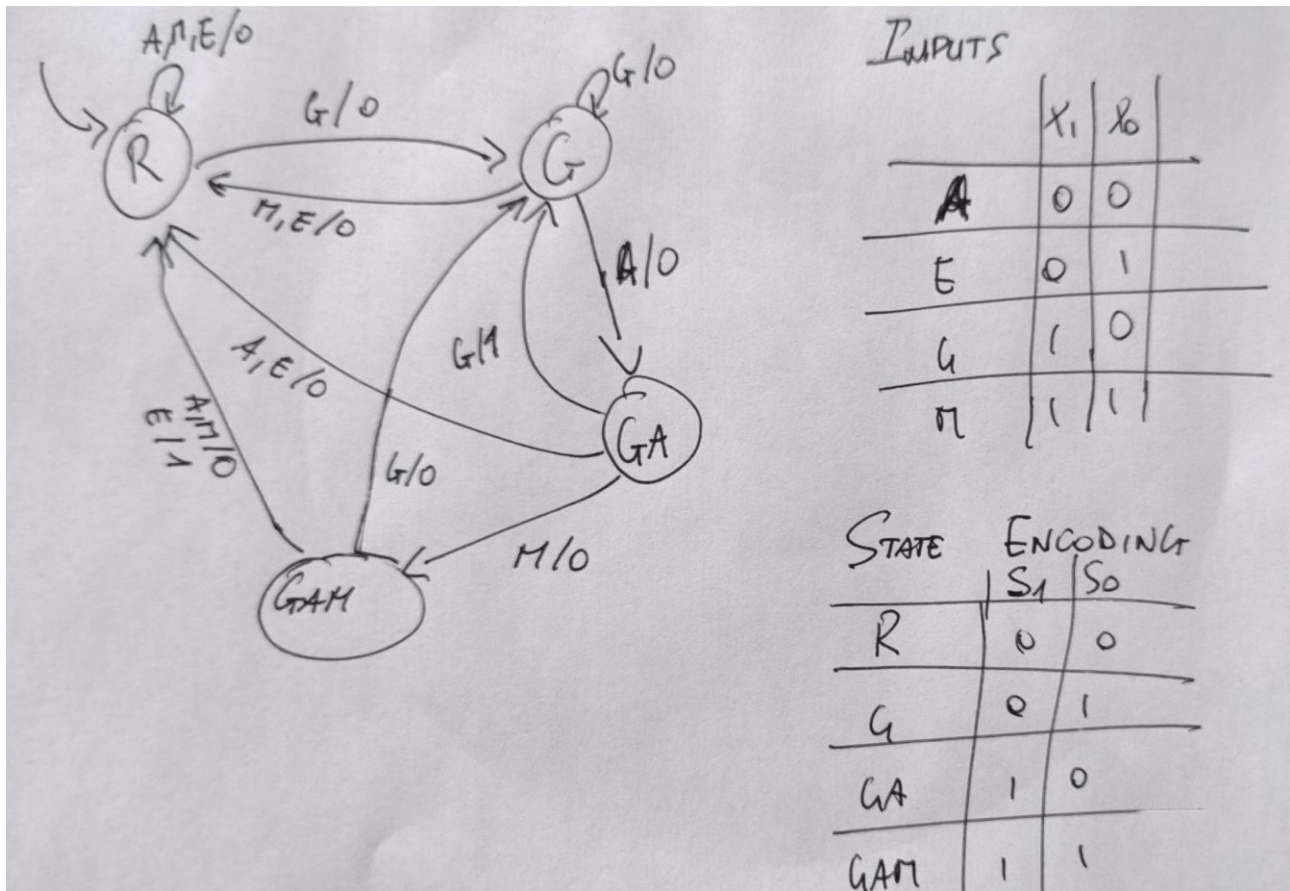 A,M,E/0
R
G/0
G/0
G
M,E/0
A/0
G/1
A,E/0
GA
A,M/0
E/1
G/0
M/0
GAM
INPUTS
X1 X0
A 0 0
E 0 1
G 1 0
M 1 1
STATE ENCODING
S1 S0
R 0 0
G 0 1
GA 1 0
GAM 1 1